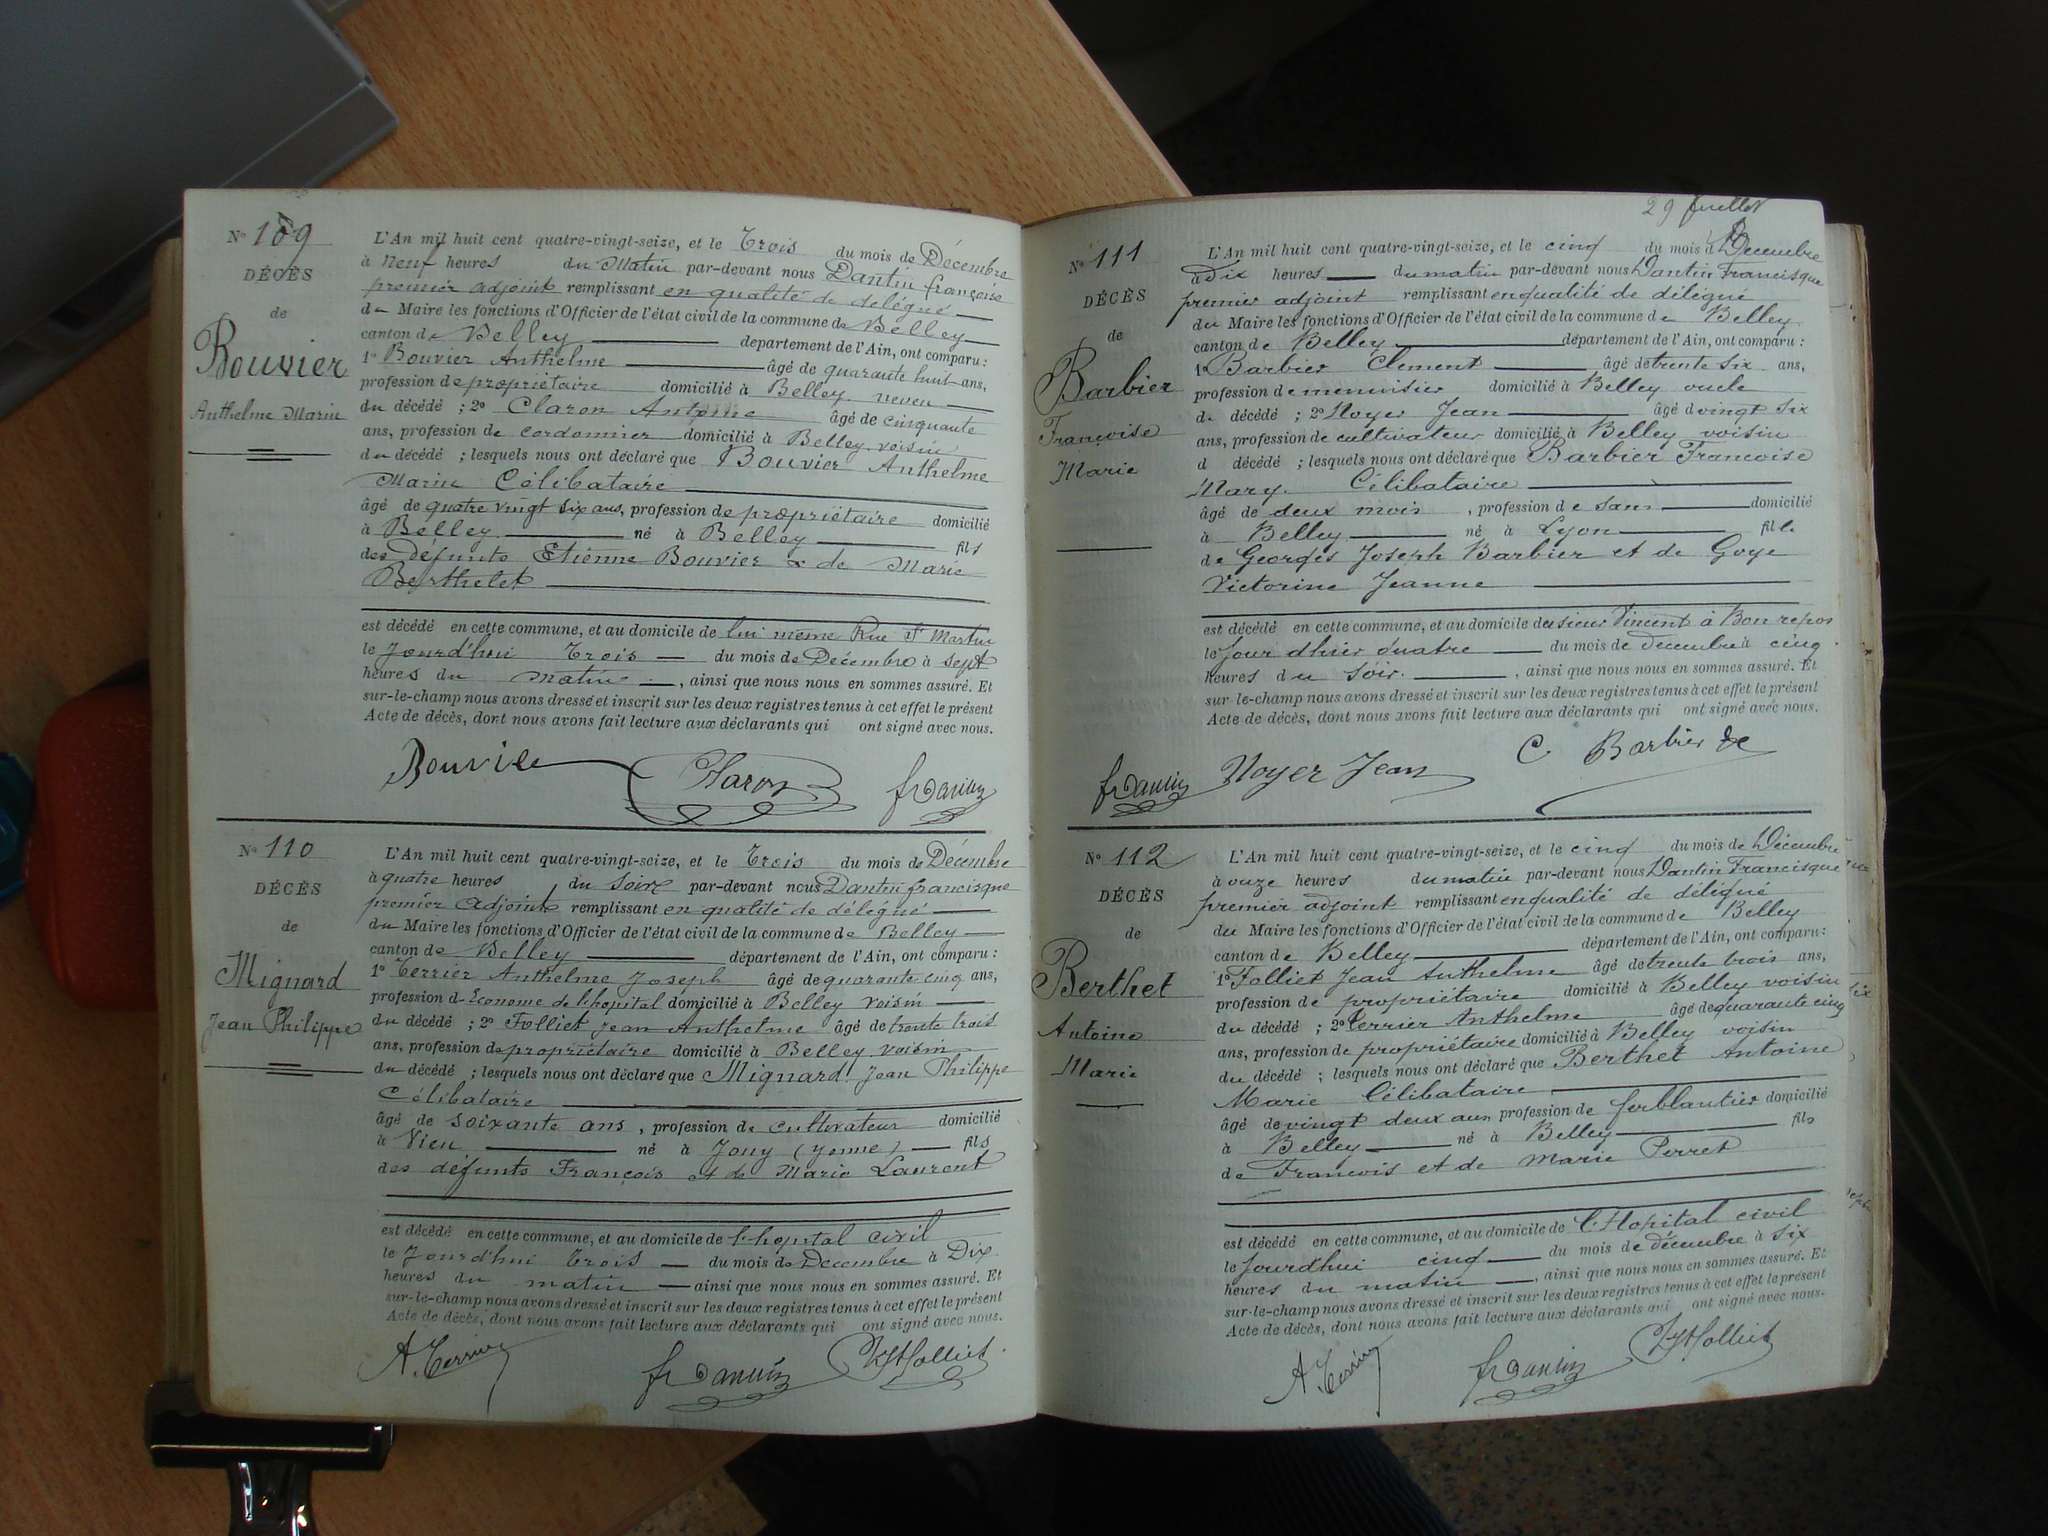 Nº 109
DÉCÈS
de
Bouvier
Anthelme Marin
L'An mil huit cent quatre-vingt-seize, et le Trois du mois de Décembre
à neuf heures du Matin par-devant nous Dantin françoise
premier adjoint remplissant en qualité de délégué
du Maire les fonctions d'Officier de l'état civil de la commune de Belley
canton de Belley département de l'Ain, ont comparu :
1º Bouvier Anthelme âgé de quarante huit ans,
profession de propriétaire domicilié à Belley neveu
du décédé ; 2º Claron Antoine âgé de cinquante
ans, profession de cordonnier domicilié à Belley voisin
du décédé ; lesquels nous ont déclaré que Bouvier Anthelme
Marin Célibataire
âgé de quatre vingt six ans, profession de propriétaire domicilié
à Belley né à Belley fils
des défunts Etienne Bouvier & de Marie
Berthelet
est décédé en cette commune, et au domicile de lui meme Rue St Martin
le Jourd'hui Trois du mois de Décembre à sept
heures du matin, ainsi que nous nous en sommes assuré. Et
sur-le-champ nous avons dressé et inscrit sur les deux registres tenus à cet effet le présent
Acte de décès, dont nous avons fait lecture aux déclarants qui ont signé avec nous.
Bouvier Claron fr Dantin
Nº 110
DÉCÈS
de
Mignard
Jean Philippe
L'An mil huit cent quatre-vingt-seize, et le Trois du mois de Décembre
à quatre heures du soire par-devant nous Dantin francisque
premier Adjoint remplissant en qualité de délégué
du Maire les fonctions d'Officier de l'état civil de la commune de Belley
canton de Belley département de l'Ain, ont comparu :
1º Terrier Anthelme Joseph âgé de quarante cinq ans,
profession d'Econome de l'hopital domicilié à Belley voisin
du décédé ; 2º Folliet Jean Anthelme âgé de trente trois
ans, profession de propriétaire domicilié à Belley voisin
du décédé ; lesquels nous ont déclaré que Mignard Jean Philippe
Célibataire
âgé de soixante ans, profession de cultivateur domicilié
à Vieu né à Jouy (yonne) fils
des défunts François et de Marie Laurent
est décédé en cette commune, et au domicile de l'hopital civil
le Jourd'hui Trois du mois de Decembre à Dix
heures du matin ainsi que nous nous en sommes assuré. Et
sur-le-champ nous avons dressé et inscrit sur les deux registres tenus à cet effet le présent
Acte de décès, dont nous avons fait lecture aux déclarants qui ont signé avec nous.
A. Terrier fr Dantin JAFolliet
29 feuillet
Nº 111
DÉCÈS
de
Barbier
Françoise
Marie
L'An mil huit cent quatre-vingt-seize, et le cinq du mois d Decembre
à Dix heures du matin par-devant nous Dantin Francisque
premier adjoint remplissant en qualité de délégué
du Maire les fonctions d'Officier de l'état civil de la commune de Belley
canton de Belley département de l'Ain, ont comparu :
1º Barbier Clement âgé de trente six ans,
profession de menuisier domicilié à Belley oncle
d décédé ; 2º Noyer Jean âgé d vingt six
ans, profession de cultivateur domicilié à Belley voisin
d décédé ; lesquels nous ont déclaré que Barbier Francoise
Mary. Célibataire
âgé de deux mois, profession de sans domicilié
à Belley né à Lyon fille
de Georges Joseph Barbier et de Goye
Victorine Jeanne
est décédé en cette commune, et au domicile du sieur Vincent à Bon repos
le Jour dhier quatre du mois de decembre à cinq
heures du soir. , ainsi que nous nous en sommes assuré. Et
sur-le-champ nous avons dressé et inscrit sur les deux registres tenus à cet effet le présent
Acte de décès, dont nous avons fait lecture aux déclarants qui ont signé avec nous.
fr Dantin Noyer Jean C Barbier
Nº 112
DÉCÈS
de
Berthet
Antoine
Marie
L'An mil huit cent quatre-vingt-seize, et le cinq du mois de Décembre
à onze heures du matin par-devant nous Dantin Francisque
premier adjoint remplissant en qualité de délégué
du Maire les fonctions d'Officier de l'état civil de la commune de Belley
canton de Belley département de l'Ain, ont comparu :
1º Folliet Jean Anthelme âgé de trente trois ans,
profession de propriétaire domicilié à Belley voisin
du décédé ; 2º Terrier Anthelme âgé de quarante cinq
ans, profession de propriétaire domicilié à Belley voisin
du décédé ; lesquels nous ont déclaré que Berthet Antoine
Marie Célibataire
âgé de vingt deux ans profession de ferblantier domicilié
à Belley né à Belley fils
de Francois et de Marie Perret
est décédé en cette commune, et au domicile de l'Hopital civil
le Jourdhui cinq du mois de décembre à six
heures du matin, ainsi que nous nous en sommes assuré. Et
sur-le-champ nous avons dressé et inscrit sur les deux registres tenus à cet effet le présent
Acte de décès, dont nous avons fait lecture aux déclarants qui ont signé avec nous.
A Terrier fr Dantin JAFolliet